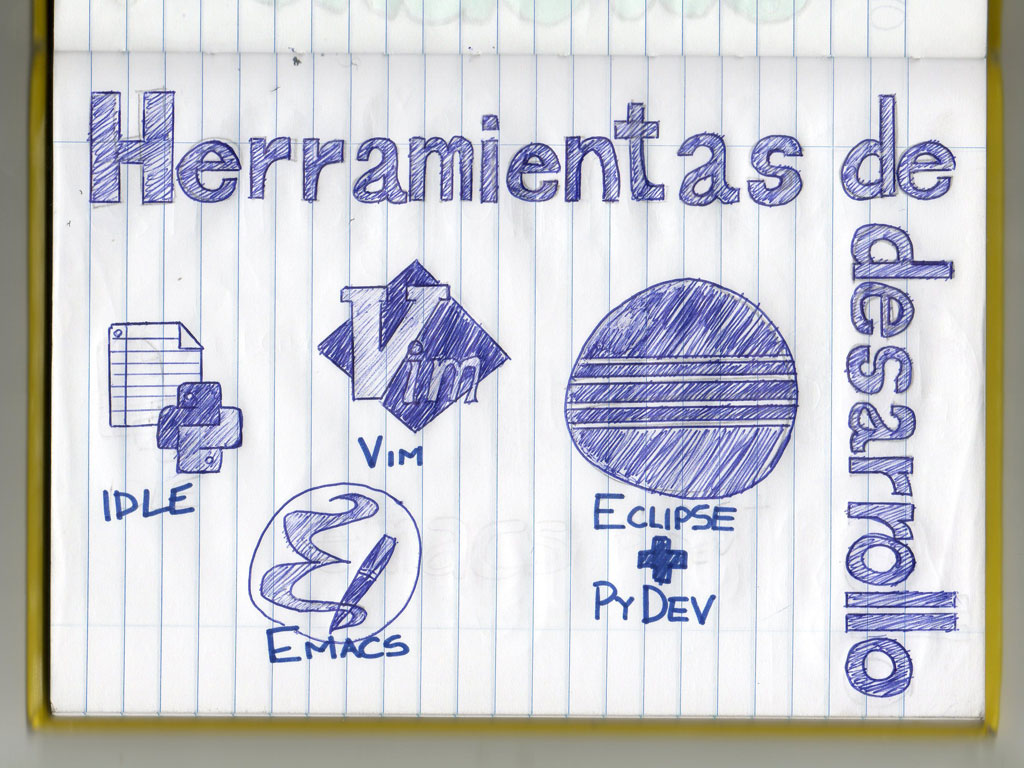 Herramientas de
desarrollo
Vim
IDLE
VIM
ECLIPSE
+
PYDEV
EMACS